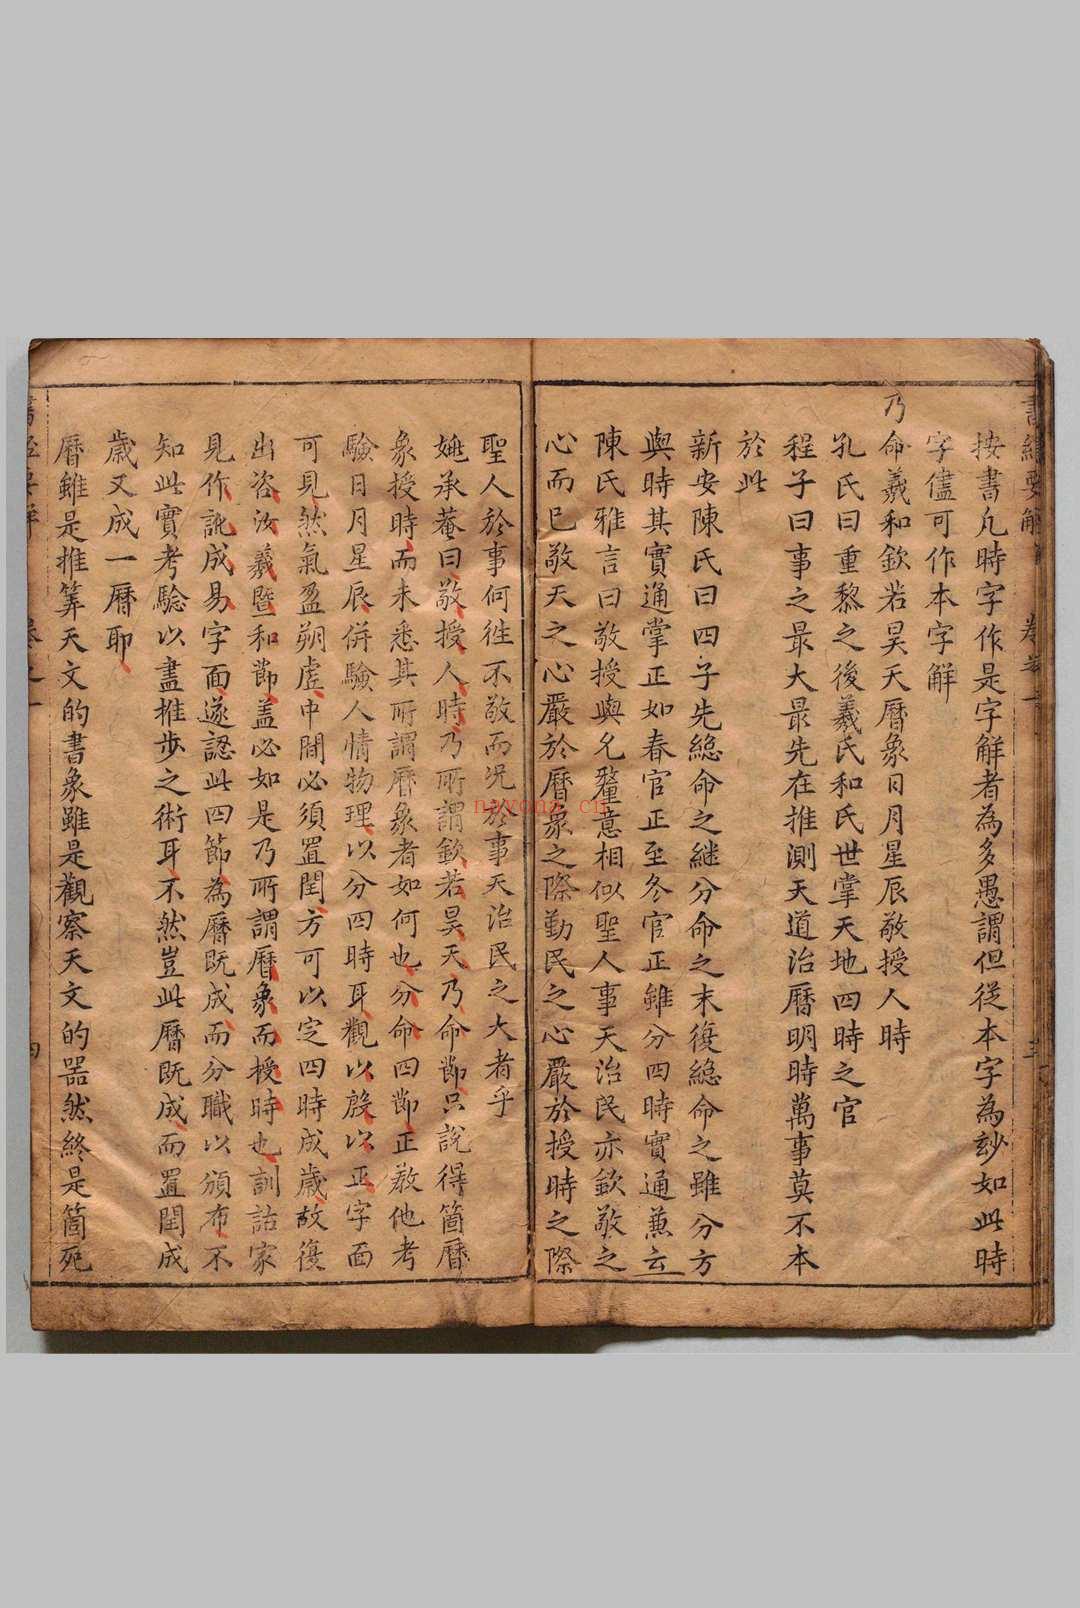 按書凡時字作是字解者為多愚謂但從本字為玅如此時
字儘可作本字解
乃命羲和欽若昊天曆象日月星辰敬授人時
孔氏曰重黎之後羲氏和氏世掌天地四時之官
程子曰事之最大最先在推測天道治曆明時萬事莫不本
於此
新安陳氏曰四子先緫命之継分命之末復緫命之雖分方
與時其實通掌正如春官正至冬官正雖分四時實通蕉云
陳氏雅言曰敬授與允釐意相似聖人事天治民亦欽敬之
心而已敬天之心嚴於曆象之際勤民之心嚴於授時之際
聖人於事何徃不敬而况於事天治民之大者乎
姚承菴曰敬授人時乃所謂欽若昊天乃命節只說得箇曆
象授時而未悉其所謂曆象者如何也分命四節正教他考
驗日月星辰併驗人情物理以分四時耳觀以殷以正字面
可見然氣盈朔虛中間必須置閏方可以定四時成歲故復
出咨汝羲暨和節盖必如是乃所謂曆象而授時也訓詁家
見作訛成易字面遂認此四節為曆既成而分職以頒布不
知此實考驗以盡推步之術耳不然豈此曆既成而置閏成
歲又成一曆耶
曆雖是推筭天文的書象雖是觀察天文的器然終是箇死
書經要解
卷之一
四
nayona.cn